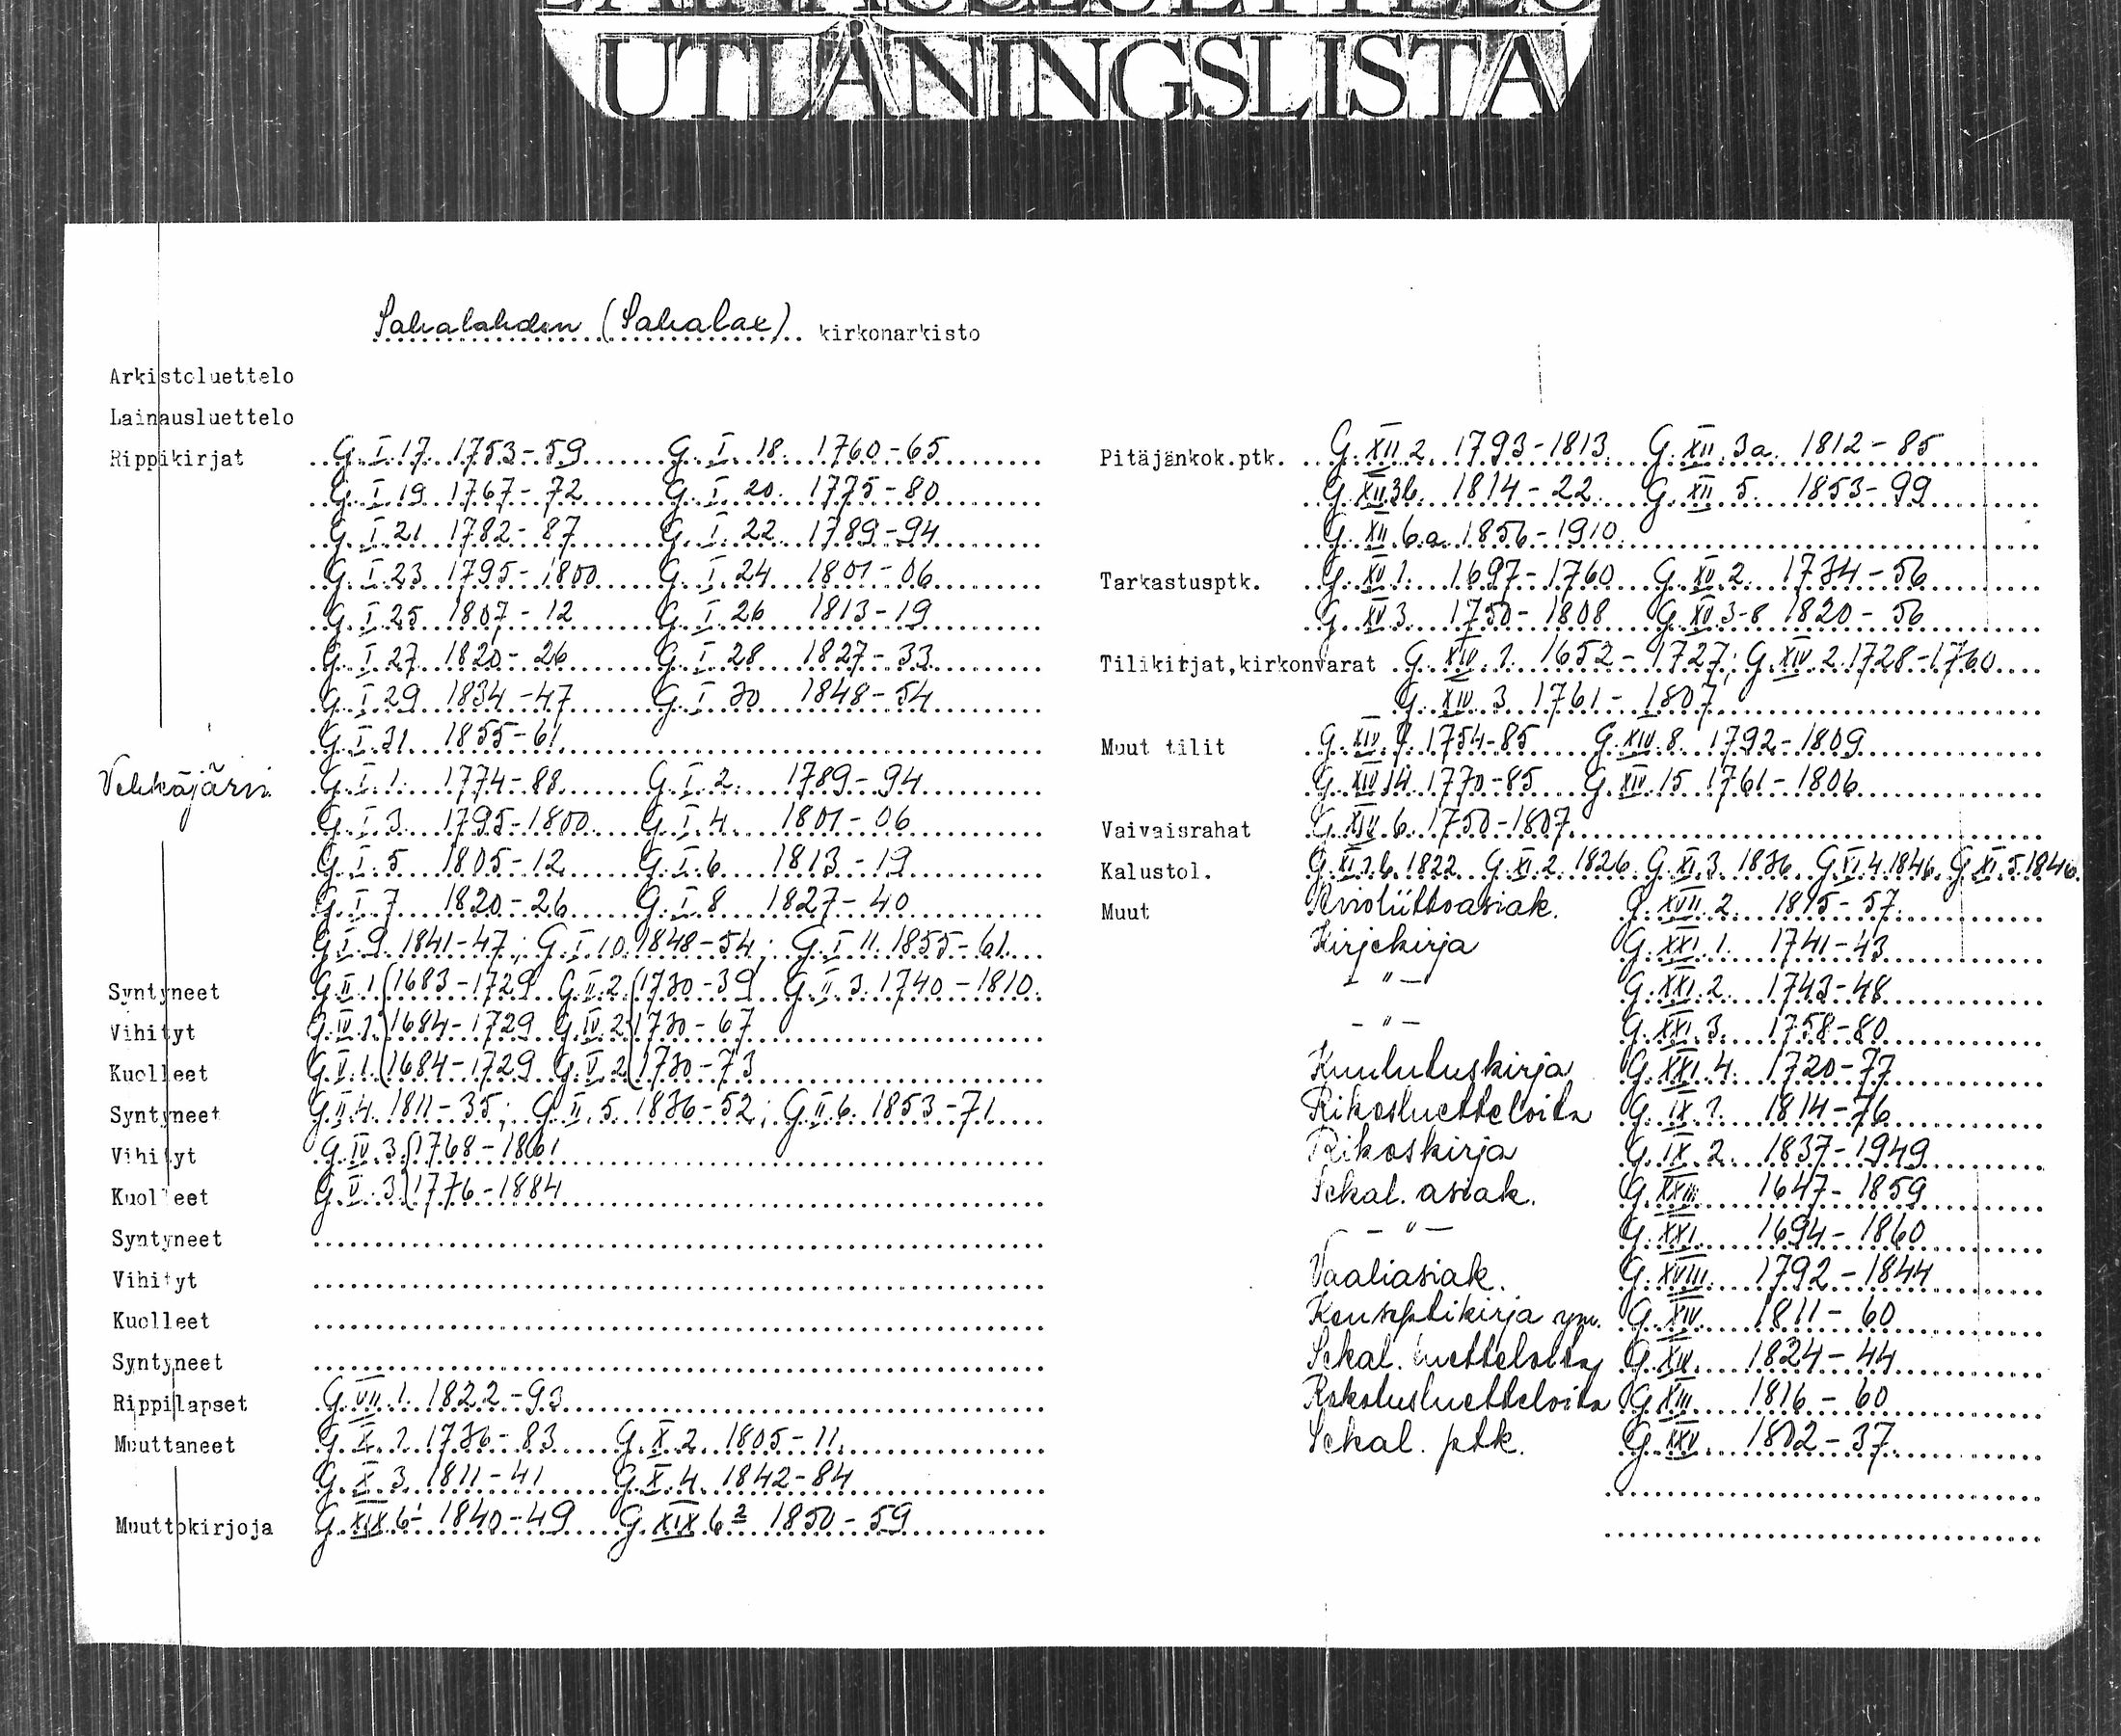 UTLÅNINGSLISTA
Sahalahden (Sahalax) kirkonarkisto
Arkistoluettelo
Lainausluettelo
Rippikirjat G.I.17. 1753-59 G.I.18. 1760-65
G.I.19 1767-72 G.I.20. 1775-80
G.I.21 1782-87 G.I.22 1789-94
G.I.23 1795-1800 G.I.24 1801-06
G.I.25 1807-12 G.I.26 1813-19
G.I.27 1820-26 G.I.28 1827-33
G.I.29 1834-47 G.I.30 1848-54
G.I.31 1855-61
Vehkajärvi G.I.1. 1774-88 G.I.2. 1789-94
G.I.3 1795-1800 G.I.4. 1801-06
G.I.5 1805-12 G.I.6 1813-19
G.I.7 1820-26 G.I.8 1827-40
G.I.9. 1841-47; G.I.10. 1848-54; G.I.11. 1855-61
Syntyneet G.II.1 1683-1729 G.II.2. 1730-39 G.II.3. 1740-1810
Vihityt G.IV.1. 1684-1729 G.IV.2 1730-67
Kuolleet G.V.1. 1684-1729 G.V.2 1730-73
Syntyneet G.II.4. 1811-35; G.II.5. 1836-52; G.II.6. 1853-71
Vihityt G.IV.3. 1768-1861
Kuolleet G.V.3. 1776-1884
Syntyneet
Vihityt
Kuolleet
Syntyneet
Rippilapset G.VII.1. 1822-93
Muuttaneet G.X.1. 1786-83 G.X.2. 1805-11
G.X.3. 1811-41 G.X.4. 1842-84
Muuttokirjoja G.XIX.6¹ 1840-49 G.XIX.6² 1850-59
Pitäjänkok.ptk. G.XII.2. 1793-1813. G.XII.3a. 1812-85
G.XII.3b. 1814-22 G.XII.5. 1853-99
G.XII.6.a. 1856-1910.
Tarkastusptk. G.XV.1. 1697-1760 G.XV.2. 1734-56
G.XV.3. 1750-1808 G.XV.3-8 1820-56
Tilikirjat,kirkonvarat G.XIV.1. 1652-1727; G.XIV.2. 1728-1760
G.XIV.3. 1761-1807
Muut tilit G.XIV.7. 1754-85 G.XIV.8. 1792-1809
G.XIV.14. 1770-85 G.XIV.15 1761-1806
Vaivaisrahat G.XIV.6. 1750-1807
Kalustol. G.XI.1.b. 1822 G.XI.2. 1826. G.XI.3. 1836. G.XI.4. 1846. G.XI.5. 1846.
Muut G.XVII.2. 1815-57
Kirjekirja G.XXI.1. 1741-43
-"- G.XXI.2. 1743-48
-"- G.XXI.3. 1758-80
Kuulutuskirja G.XXI.4. 1720-77
Rikosluetteloita G.IX.1. 1814-76
Rikoskirja G.IX.2. 1837-1949
Sekal. asiak. G.XXIII 1647-1859
-"- G.XXI. 1694-1860
Vaaliasiak. G.XVIII. 1792-1844
Konseptikirja ym. G.XIV. 1811-60
Sekal. luetteloita G.XIV. 1824-44
Rokotusluetteloita G.XIII 1816-60
Sekal. ptk. G.XXV. 1802-37